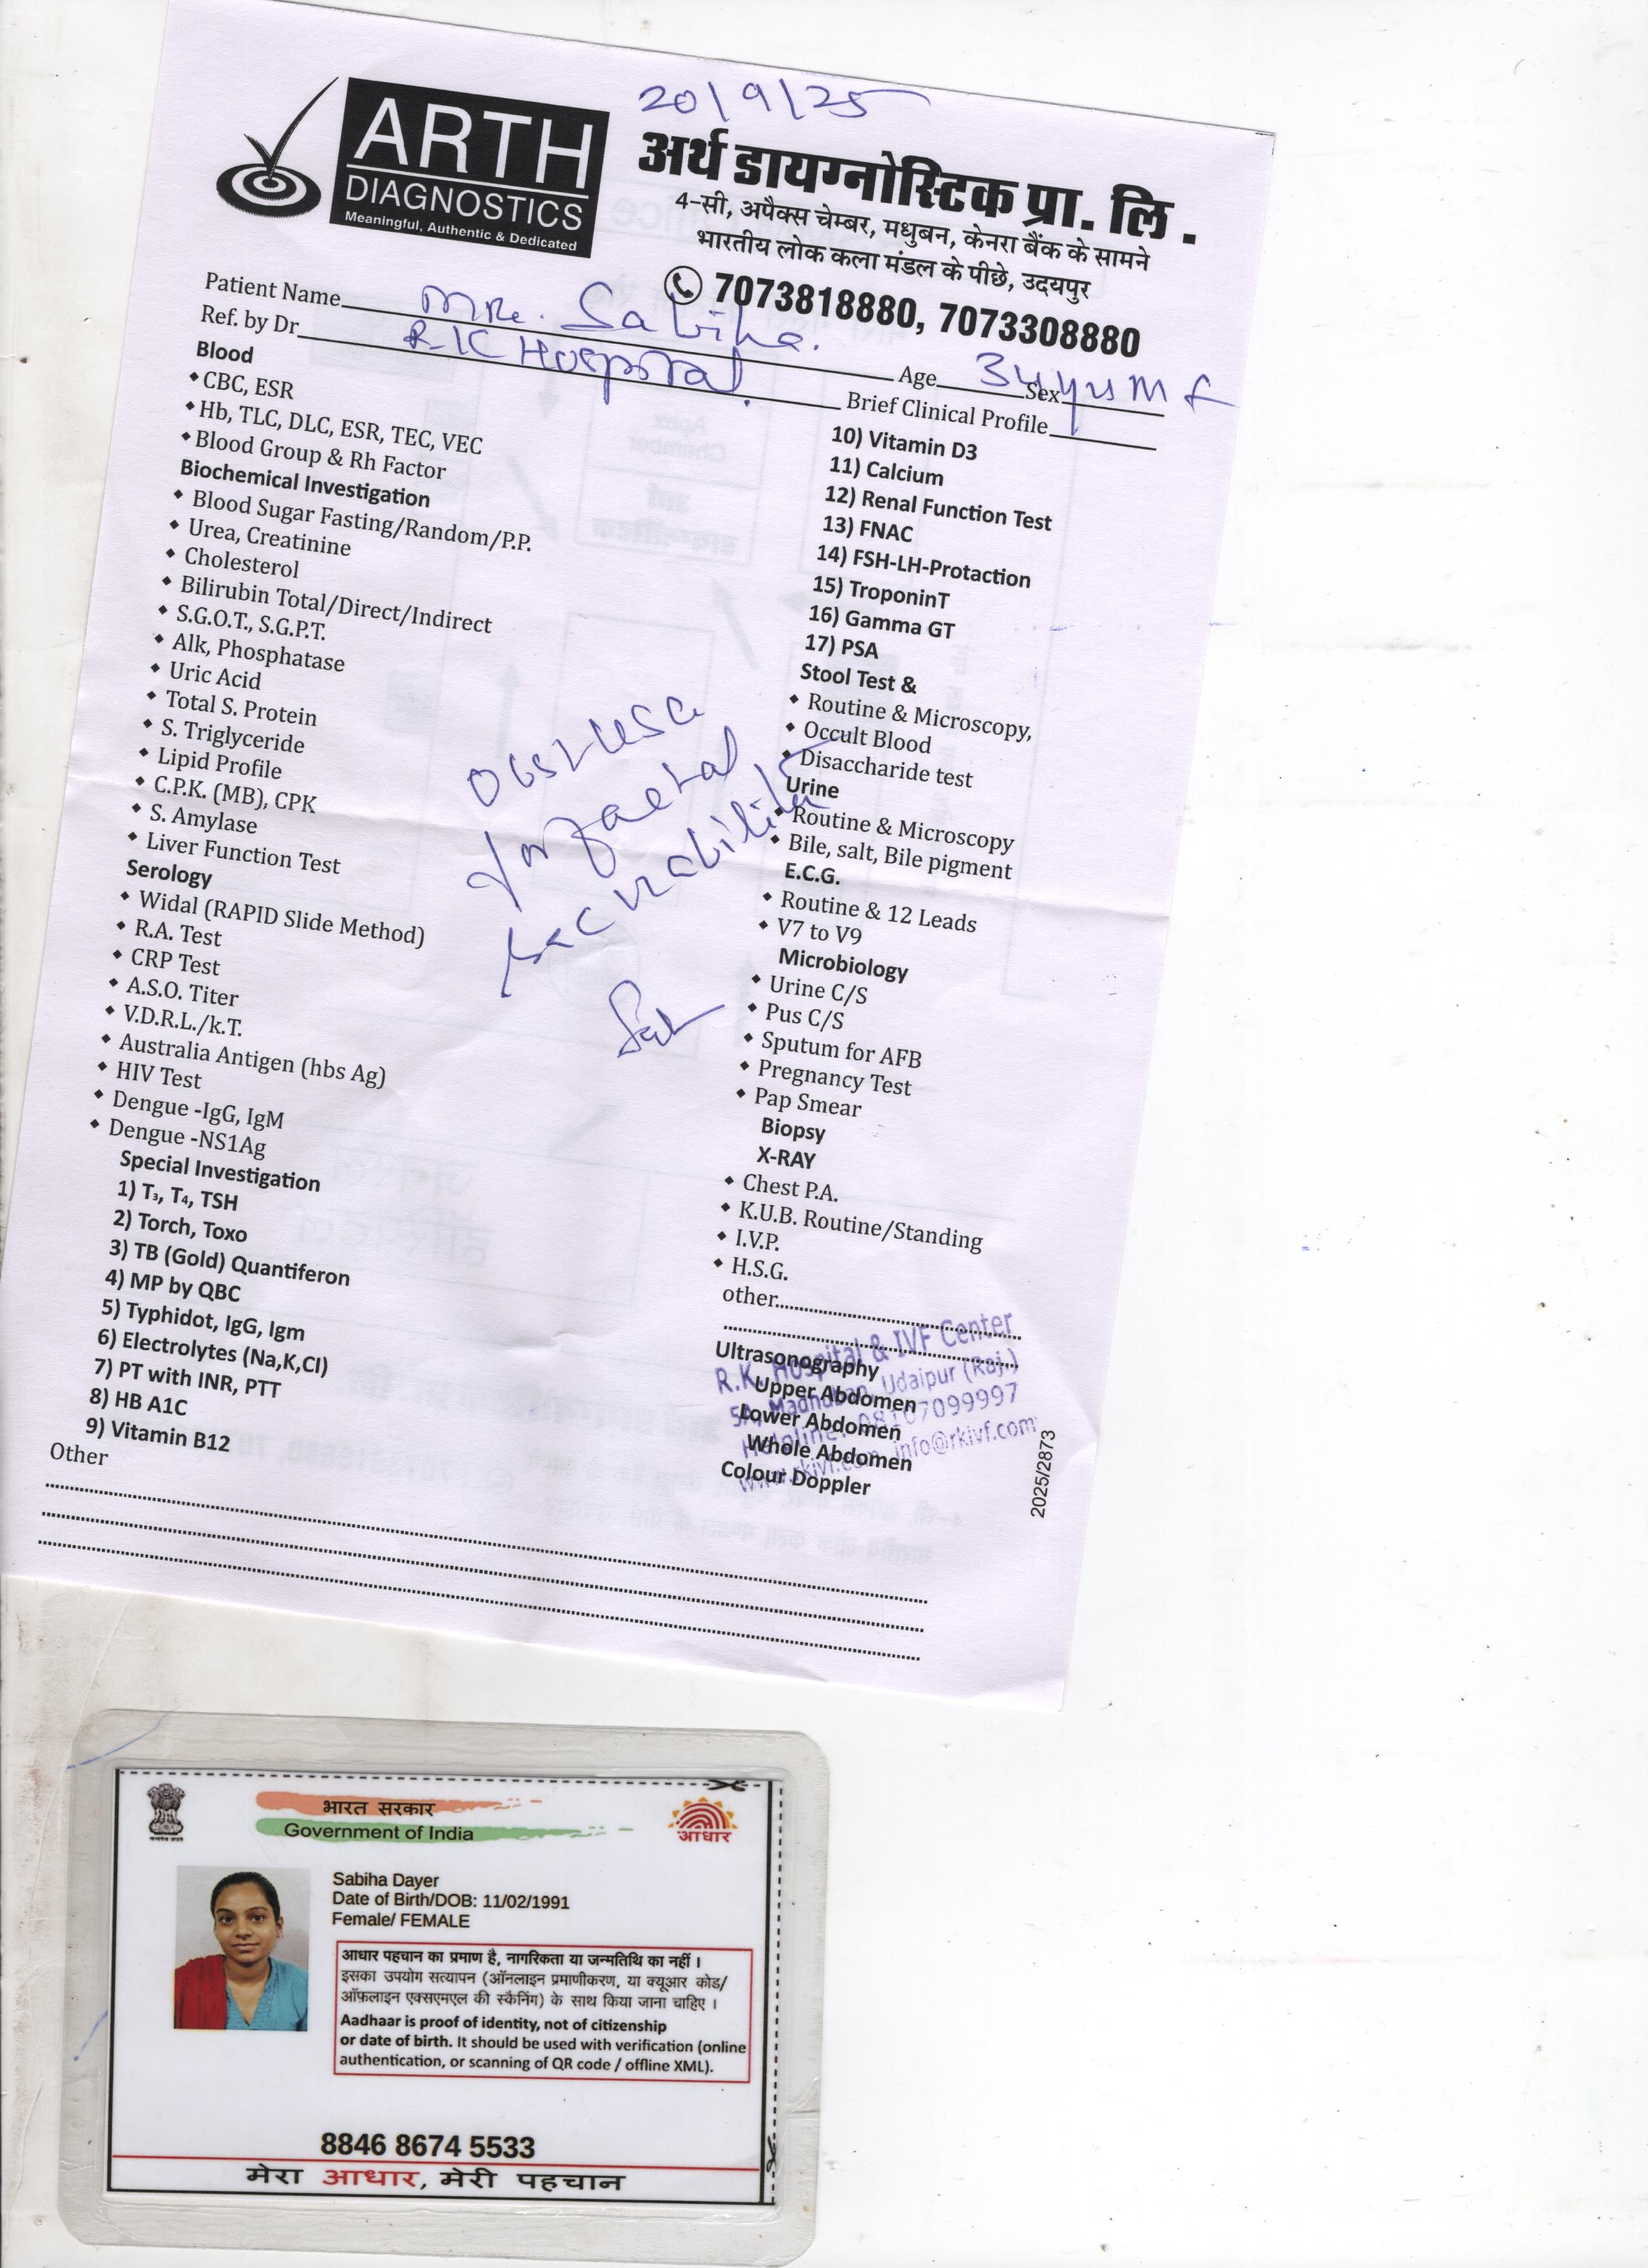 20/9/25
ARTH
DIAGNOSTICS
Meaningful, Authentic & Dedicated
अर्थ डायग्नोस्टिक प्रा. लि .
4-सी, अपैक्स चेम्बर, मधुबन, केनरा बैंक के सामने
भारतीय लोक कला मंडल के पीछे, उदयपुर
7073818880, 7073308880
Patient Name Mrs. Sabiha.
Age 34 yrs Sex F
Ref. by Dr R K Hospital.
Brief Clinical Profile
Blood
CBC, ESR
Hb, TLC, DLC, ESR, TEC, VEC
Blood Group & Rh Factor
Biochemical Investigation
Blood Sugar Fasting/Random/P.P.
Urea, Creatinine
Cholesterol
Bilirubin Total/Direct/Indirect
S.G.O.T., S.G.P.T.
Alk, Phosphatase
Uric Acid
Total S. Protein
S. Triglyceride
Lipid Profile
C.P.K. (MB), CPK
S. Amylase
Liver Function Test
Serology
Widal (RAPID Slide Method)
R.A. Test
CRP Test
A.S.O. Titer
V.D.R.L./k.T.
Australia Antigen (hbs Ag)
HIV Test
Dengue -IgG, IgM
Dengue -NS1Ag
Special Investigation
1) T₃, T₄, TSH
2) Torch, Toxo
3) TB (Gold) Quantiferon
4) MP by QBC
5) Typhidot, IgG, Igm
6) Electrolytes (Na,K,Cl)
7) PT with INR, PTT
8) HB A1C
9) Vitamin B12
Other
Obst USG
for faetal
viability
10) Vitamin D3
11) Calcium
12) Renal Function Test
13) FNAC
14) FSH-LH-Protaction
15) TroponinT
16) Gamma GT
17) PSA
Stool Test &
Routine & Microscopy,
Occult Blood
Disaccharide test
Urine
Routine & Microscopy
Bile, salt, Bile pigment
E.C.G.
Routine & 12 Leads
V7 to V9
Microbiology
Urine C/S
Pus C/S
Sputum for AFB
Pregnancy Test
Pap Smear
Biopsy
X-RAY
Chest P.A.
K.U.B. Routine/Standing
I.V.P.
H.S.G.
other
Ultrasonography
Upper Abdomen
Lower Abdomen
Whole Abdomen
Colour Doppler
R.K. Hospital & IVF Center
5A, Madhuban, Udaipur (Raj.)
Helpline: 08107099997
www.rkivf.com, info@rkivf.com
2025/2873
भारत सरकार
Government of India
आधार
Sabiha Dayer
Date of Birth/DOB: 11/02/1991
Female/ FEMALE
आधार पहचान का प्रमाण है, नागरिकता या जन्मतिथि का नहीं ।
इसका उपयोग सत्यापन (ऑनलाइन प्रमाणीकरण, या क्यूआर कोड/
ऑफ़लाइन एक्सएमएल की स्कैनिंग) के साथ किया जाना चाहिए ।
Aadhaar is proof of identity, not of citizenship
or date of birth. It should be used with verification (online
authentication, or scanning of QR code / offline XML).
8846 8674 5533
मेरा आधार, मेरी पहचान